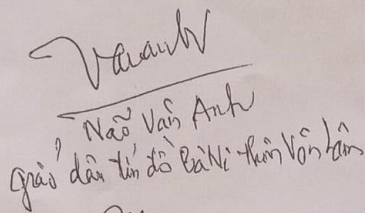 Vananh
Não Văn Anh
giáo dân tín đồ Bàni thôn Vân Lâm